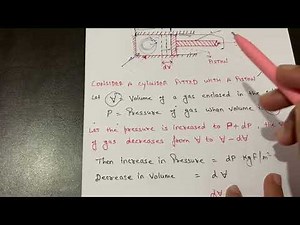 dV
PISTON
CONSIDER A CYLINDER FITTED WITH A PISTON
Let V = Volume of a gas enclosed in the
P = Pressure of gas when volume
Let the pressure is increased to P+dP, the
of gas decreases from V to V - dV
Then increase in Pressure = dP Kgf/m²
Decrease in Volume = dV
dV